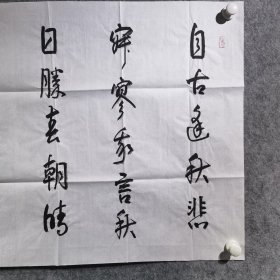 自古逢秋悲
寂寥我言秋
日胜春朝晴